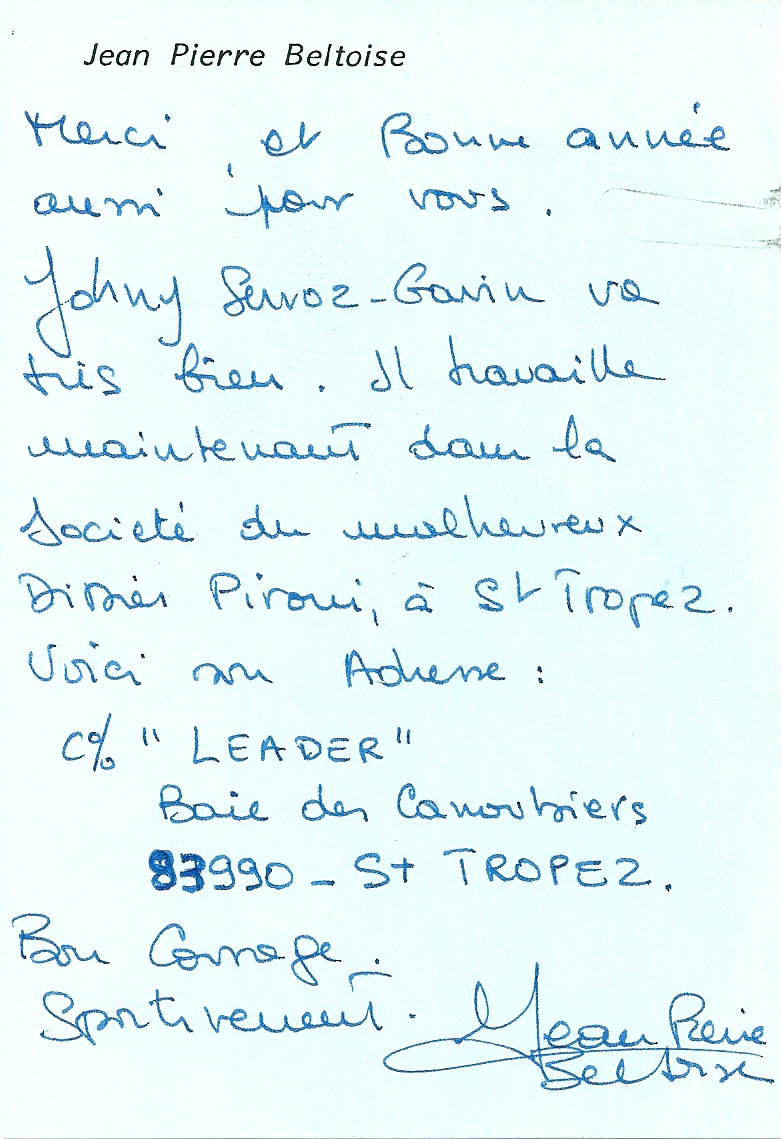 Jean Pierre Beltoise
Merci et Bonne année
aussi pour vous.
Johny Servoz-Gavin va
très bien. Il travaille
maintenant dans la
Société du malheureux
Didier Pironi, à St Tropez.
Voici son Adresse :
c% "LEADER"
Baie des Canoubiers
83990 - St TROPEZ.
Bon Courage.
Sportivement.
Jean Pierre
Beltoise